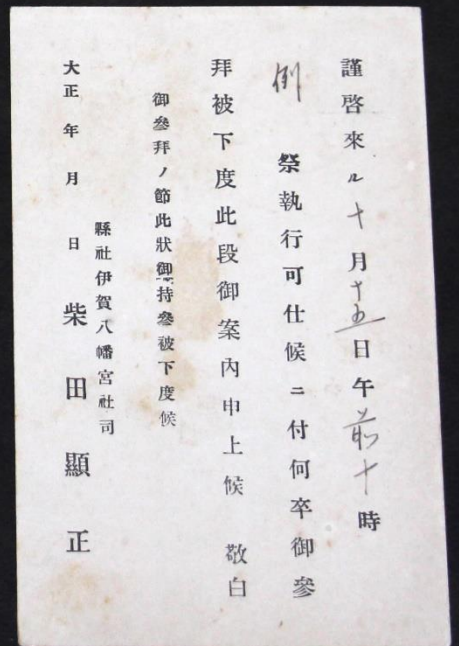 謹啓來ル十月十五日午前十時
例祭執行可仕候ニ付何卒御參
拜被下度此段御案內申上候 敬白
御參拜ノ節此狀御持參被下度候
大正 年 月 日
縣社伊賀八幡宮社司
柴田顯正